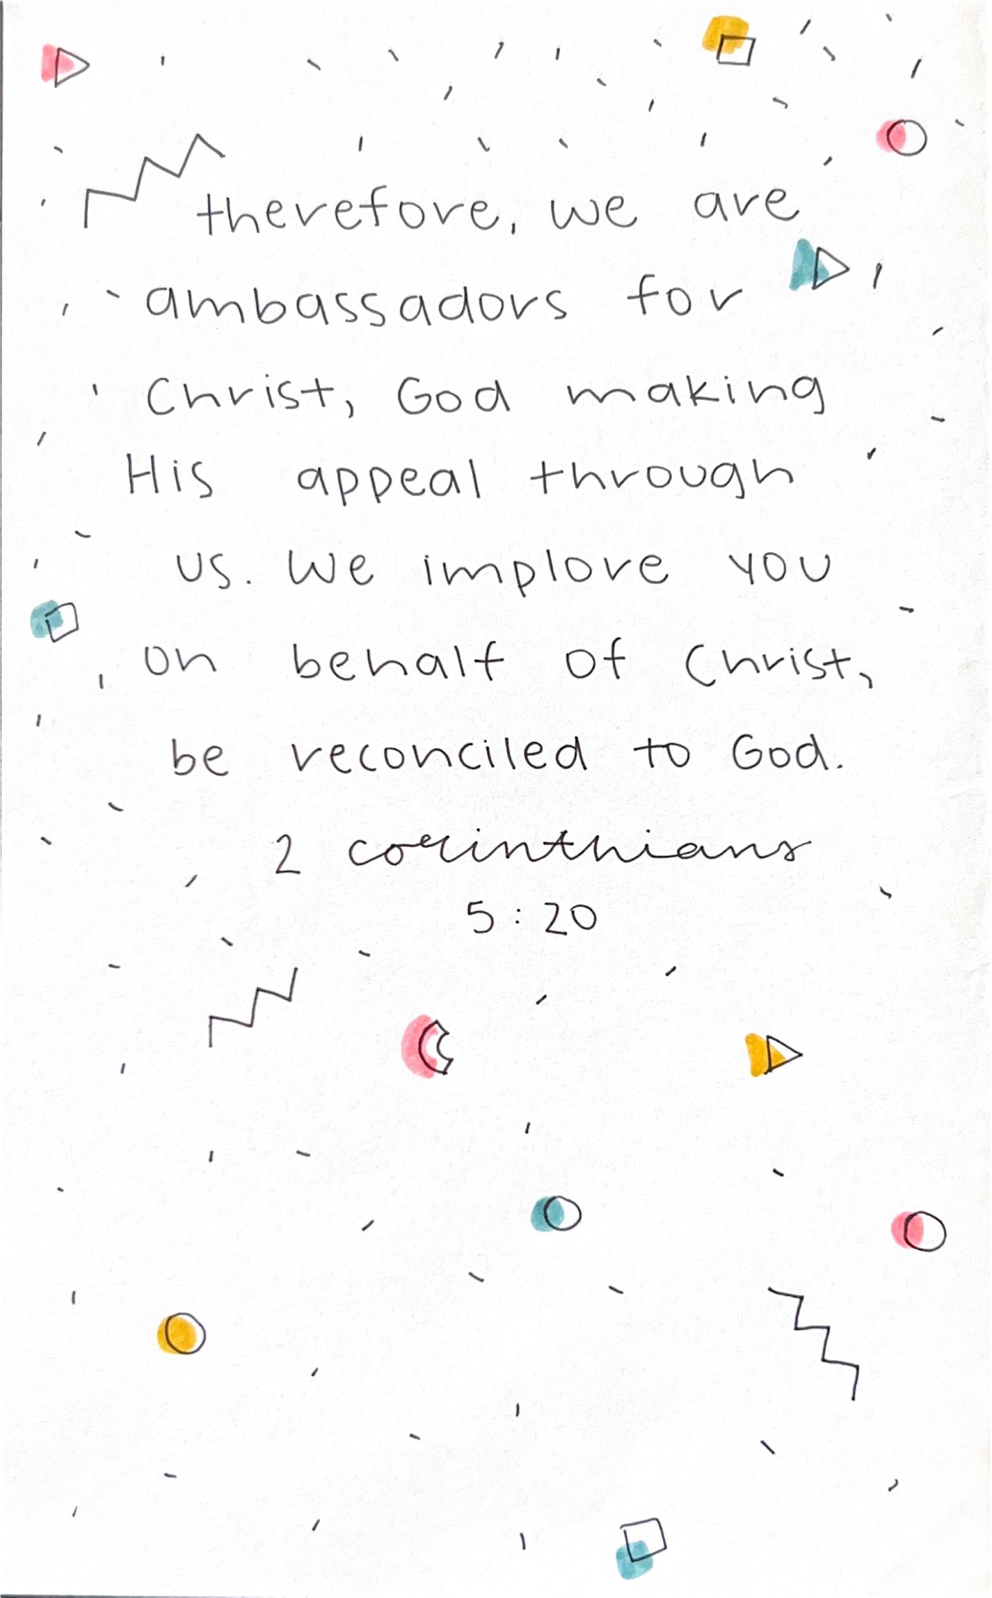 therefore, we are
ambassadors for
Christ, God making
His appeal through
us. We implore you
on behalf of Christ,
be reconciled to God.
2 corinthians
5:20